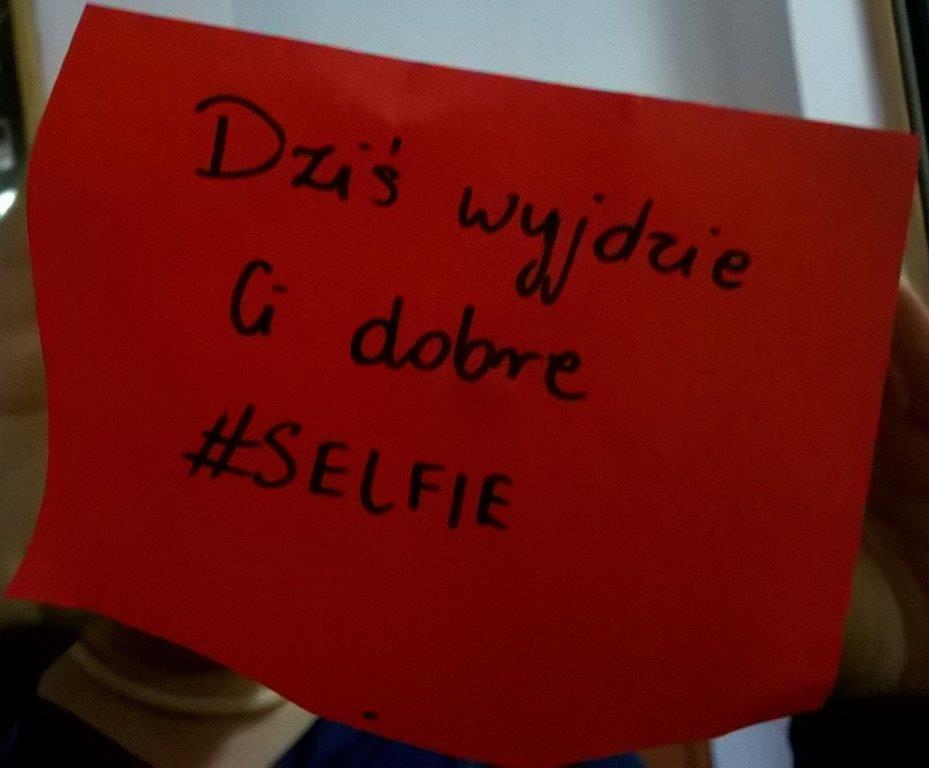 Dziś wyjdzie
Ci dobre
#SELFIE